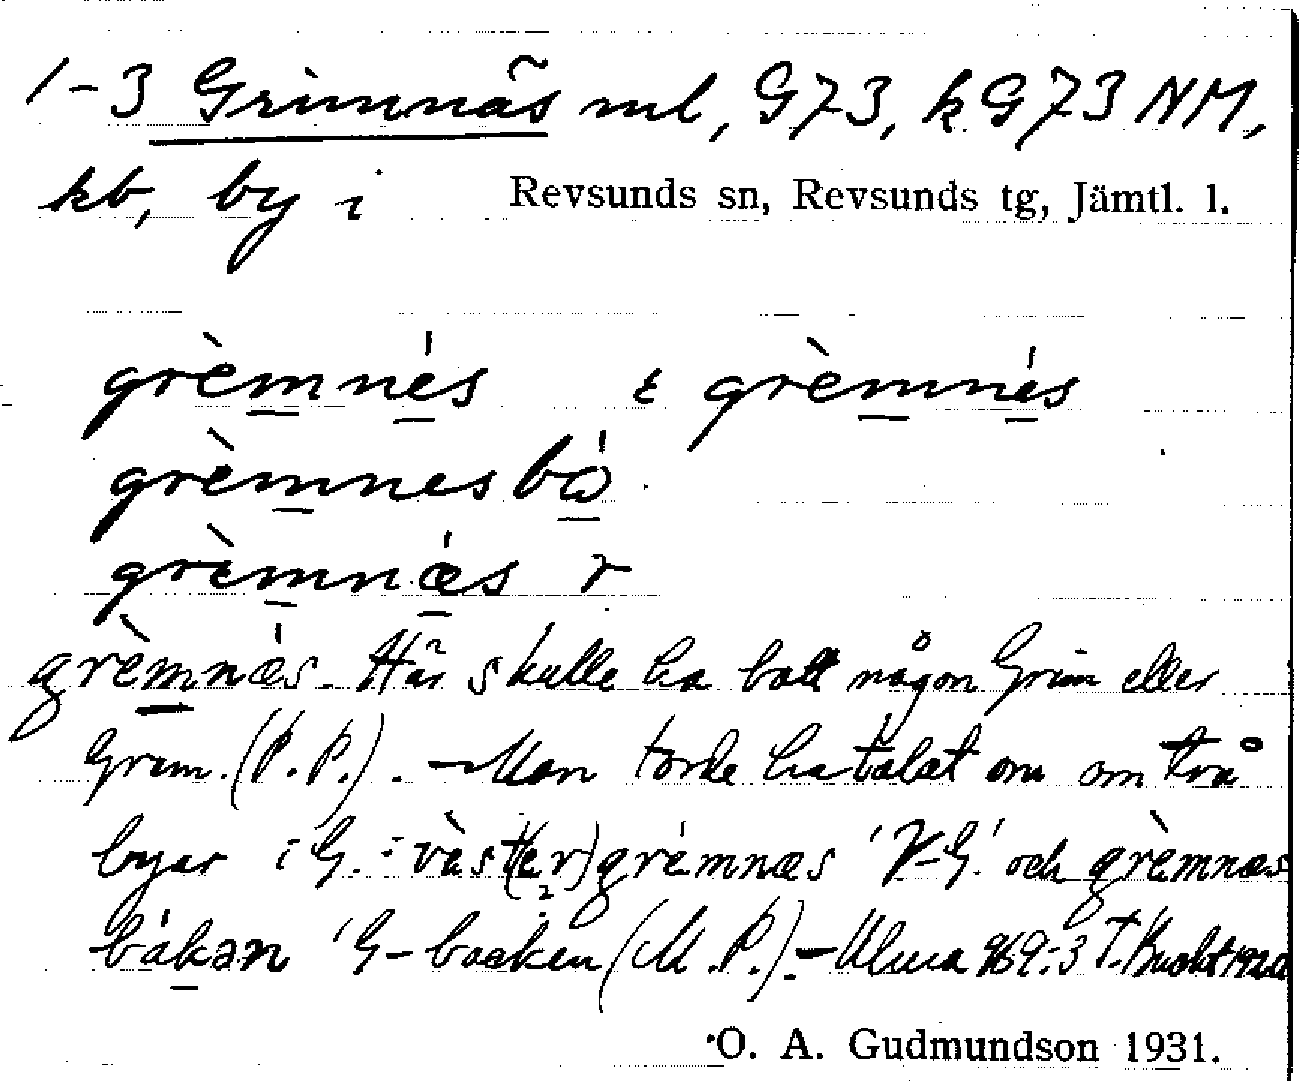 1-3 Grimnäs ml, G73, k G73 NM,
kb, by i Revsunds sn, Revsunds tg, Jämtl. l.
grèmnés ɛ grèmnés
grèmnes
grèmnǽs r
grèmnæ̀s. Här skulle ha bott någon Grim eller
Gram. (P. P.). - Man torde ha talat om om två
byar i G.: vàst(er)grémnæs 'V-G.' och grèmnæs
bákan 'G-backen (M. P.). - Ulma 969:3 T.
O. A. Gudmundson 1931.